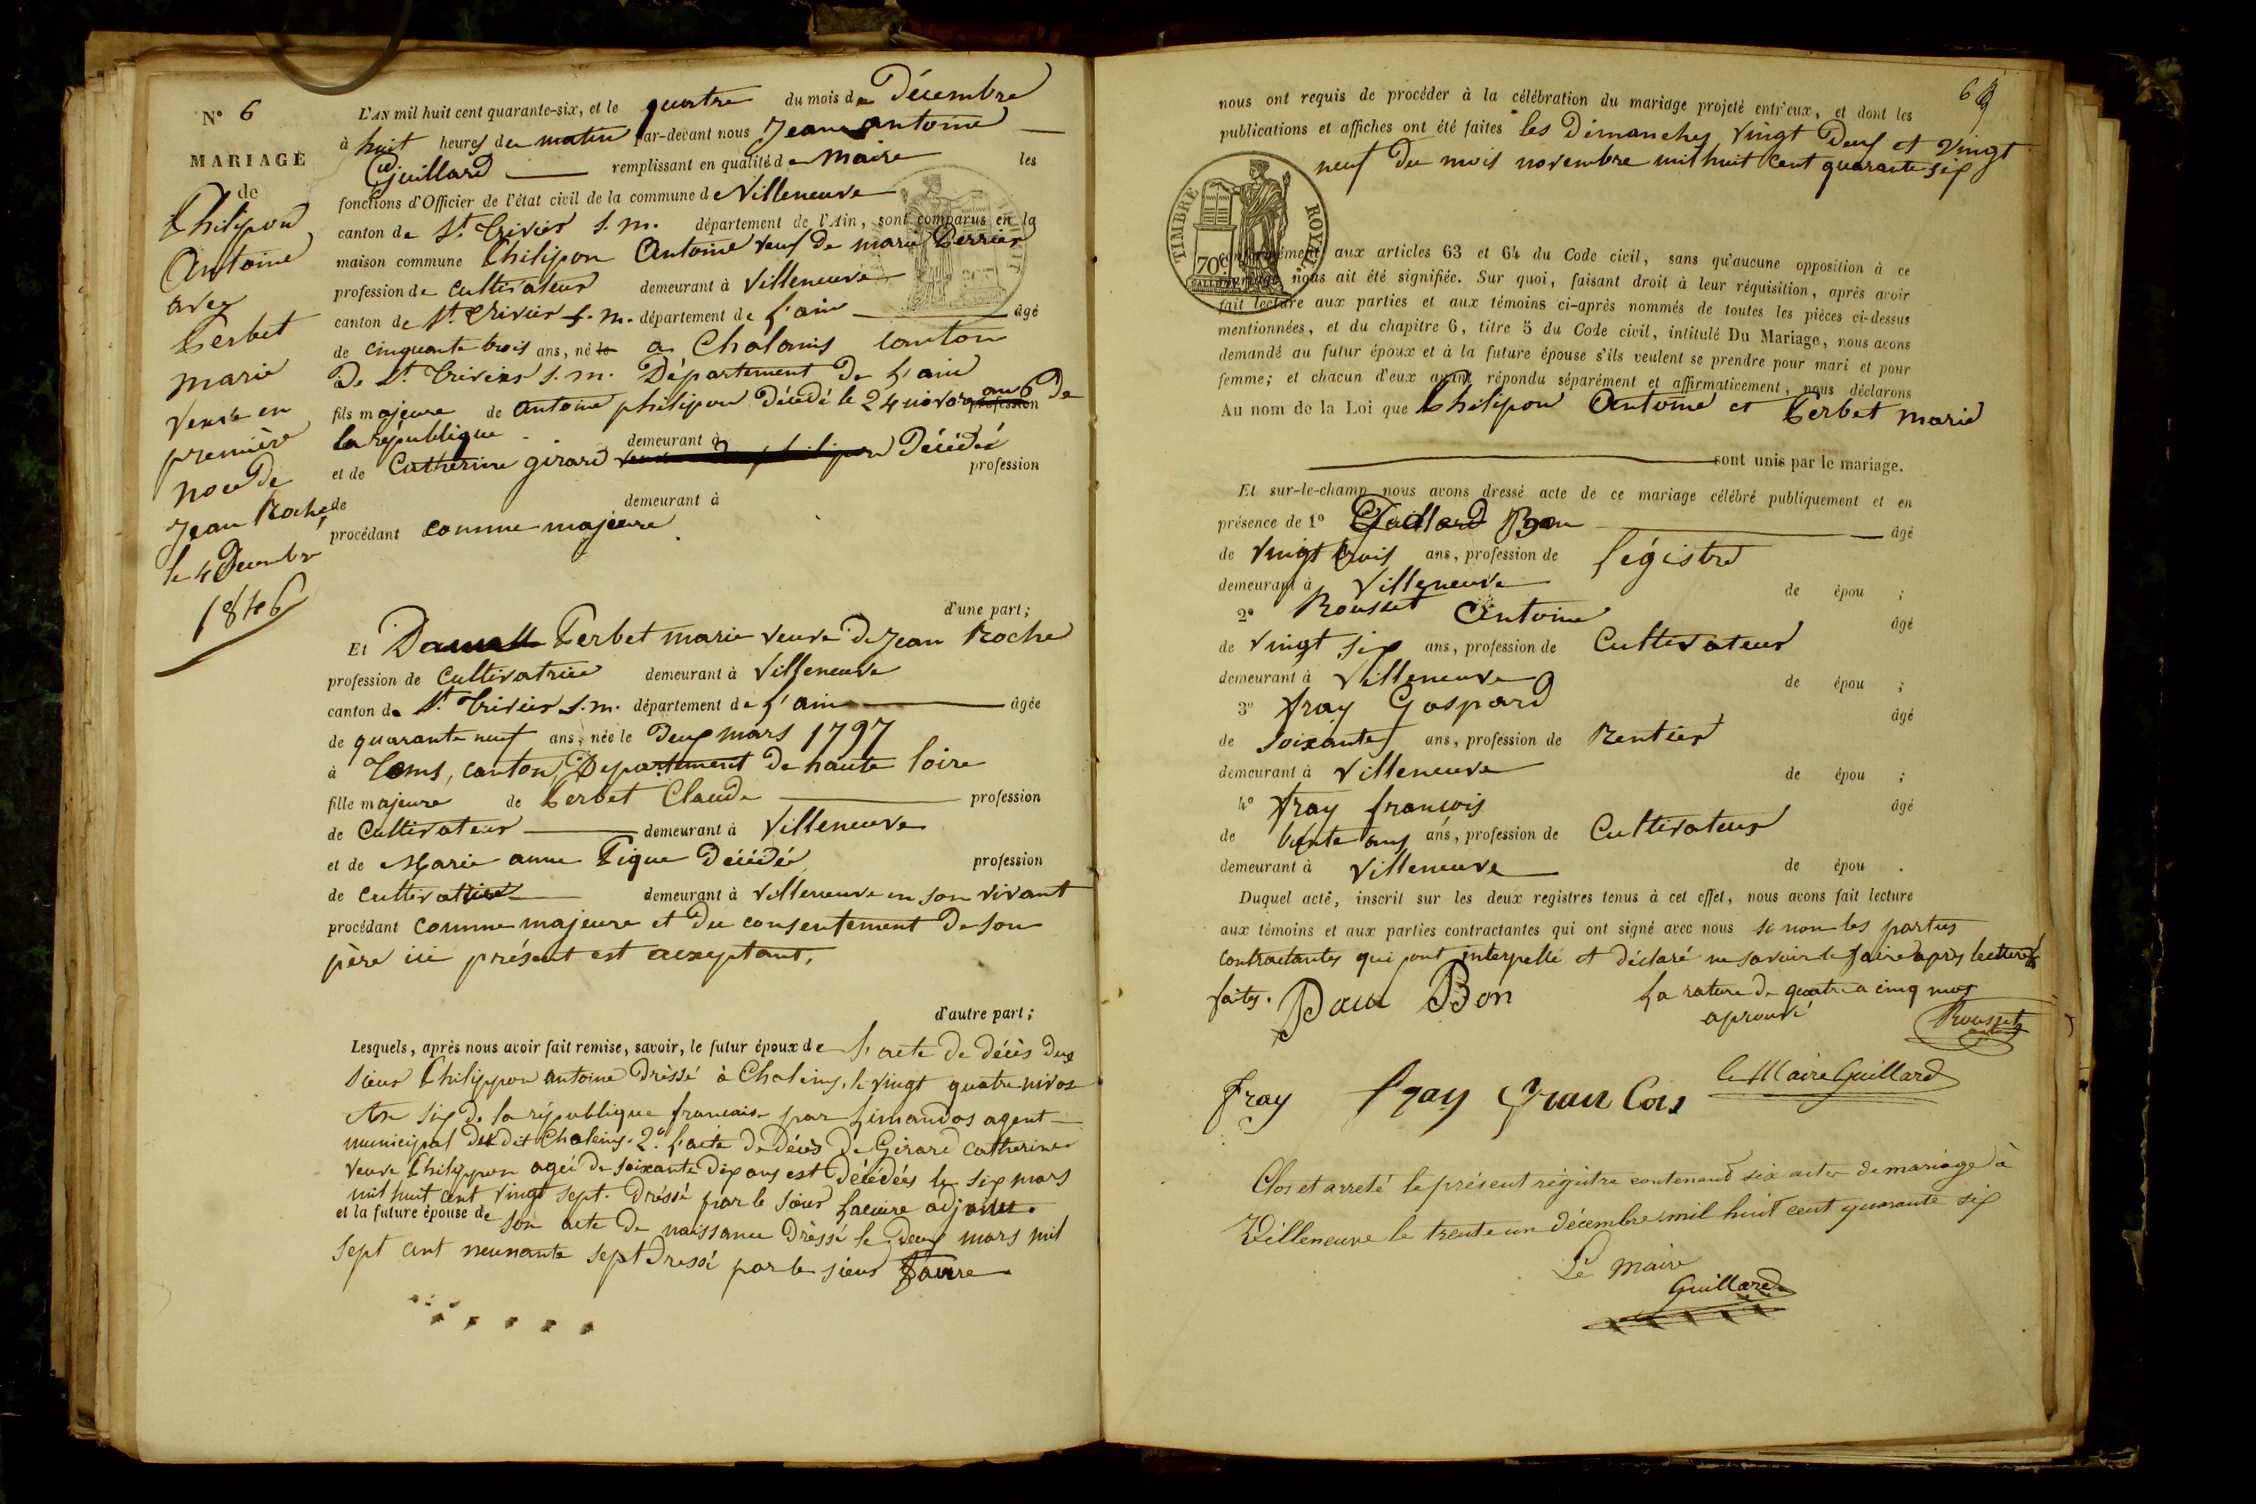 N° 6
MARIAGE
de
Philipon
Antoine
avec
Terbet
marie
Veuve en
première
noce de
Jean Roche,
le 4 Decembre
1846
L'AN mil huit cent quarante-six, et le quatre du mois de Décembre
à huit heures du matin par-devant nous Jean antoine
Guillard remplissant en qualité de maire les
fonctions d'Officier de l'état civil de la commune de Villeneuve
canton de St. Trivier s. m. département de l'Ain, sont comparus en la
maison commune Philipon Antoine veuf de marie Perrier
profession de cultivateur demeurant à Villeneuve
canton de St. Trivier s. m. département de l'ain âgé
de cinquante trois ans, né le a Chalains canton
De St. Trivier s. m. Département De L'ain
fils majeure de Antoine philipon Décédé le 24 profession an 6 De
la république demeurant à
et de Catherine girard Décédée profession
de demeurant à
procédant comme majeure
d'une part;
Et Terbet marie veuve De Jean Roche
profession de Cultivatrice demeurant à Villeneuve
canton de St. Trivier s. m. département de L'ain âgée
de quarante neuf ans, née le Deux mars 1797
à canton, Département De haute loire
fille majeure de Terbet Claude profession
de Cultivateur demeurant à Villeneuve
et de Marie anne Figue Décédée profession
de Cultivatrice demeurant à Villeneuve en son vivant
procédant comme majeure et Du consentement De son
père ici présent est acceptant,
d'autre part;
Lesquels, après nous avoir fait remise, savoir, le futur époux de L'acte De décès du
Sieur Philippon antoine Dréssé à Chaleins, le vingt quatre nivos
An six De la république francaise par Limandos agent
municipal du dit Chaleins. 2° L'acte De Décès De Girard Catherine
veuve Philippon agée De soixante Dix ans est Décédée le six mars
mil huit cent vingt sept. Dréssé par le sieur adjoint.
et la future épouse de son acte De naissance Dréssé le Deux mars mil
sept cent neunante sept Dressé par le sieur Favre
69
nous ont requis de procéder à la célébration du mariage projeté entr'eux, et dont les
publications et affiches ont été faites les Dimanches Vingt Deux et Vingt
neuf Du mois novembre mil huit Cent quarante six
TIMBRE ROYAL
70c
conformément aux articles 63 et 64 du Code civil, sans qu'aucune opposition à ce
mariage nous ait été signifiée. Sur quoi, faisant droit à leur réquisition, après avoir
fait lecture aux parties et aux témoins ci-après nommés de toutes les pièces ci-dessus
mentionnées, et du chapitre 6, titre 5 du Code civil, intitulé Du Mariage, nous avons
demandé au futur époux et à la future épouse s'ils veulent se prendre pour mari et pour
femme; et chacun d'eux ayant répondu séparément et affirmativement, nous déclarons
Au nom de la Loi que Philipon Antoine et Terbet marie
sont unis par le mariage.
Et sur-le-champ nous avons dressé acte de ce mariage célébré publiquement et en
présence de 1° Bon âgé
de Vingt trois ans, profession de Légiste
demeurant à Villeneuve de épou ;
2° Rousset Antoine âgé
de Vingt six ans, profession de Cultivateur
demeurant à Villeneuve de épou ;
3° fray Gaspard âgé
de Soixante ans, profession de Rentier
demeurant à Villeneuve de épou ;
4° fray francois âgé
de trente ans ans, profession de Cultivateur
demeurant à Villeneuve de épou .
Duquel acte, inscrit sur les deux registres tenus à cet effet, nous avons fait lecture
aux témoins et aux parties contractantes qui ont signé avec nous Si non les parties
Contractantes qui ont interpellé et déclaré ne savoir le faire après lecture
faites. Paul Bon La rature De quatre a cinq mots
aprouvé Rousset
antoine
Fray fray francois le Maire Guillard
Clos et arreté le présent régistre contenant six actes de mariage à
Villeneuve le trente un décembre mil huit cent quarante six
Le Maire
Guillard